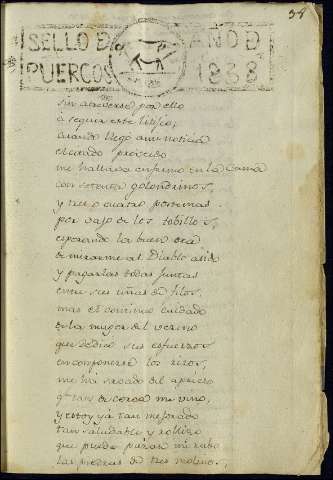 38
SELLO D AÑO D
PUERCOS 1838
sin atreverse por ello
á seguir este litijio,
cuando llegó á mi noticia
el citado
me hallava enfermo en la cama
con setenta golondrinos,
y tres ó cuatro postemas
por vajo de los tobillos,
esperando la buena ora
de mirarme al Diablo asido
y pagarlas todas juntas
entre sus uñas de filos,
mas el continuo cuidado
de la muger del vecino
que dedicó sus esfuerzos
en componerse los rizos,
me ha sacado del aprieto
qe. tan de cerca me vino,
y estoy yá tan mejorado
tan saludable y rollizo
que puede parar mi
las piedras de tres molinos,